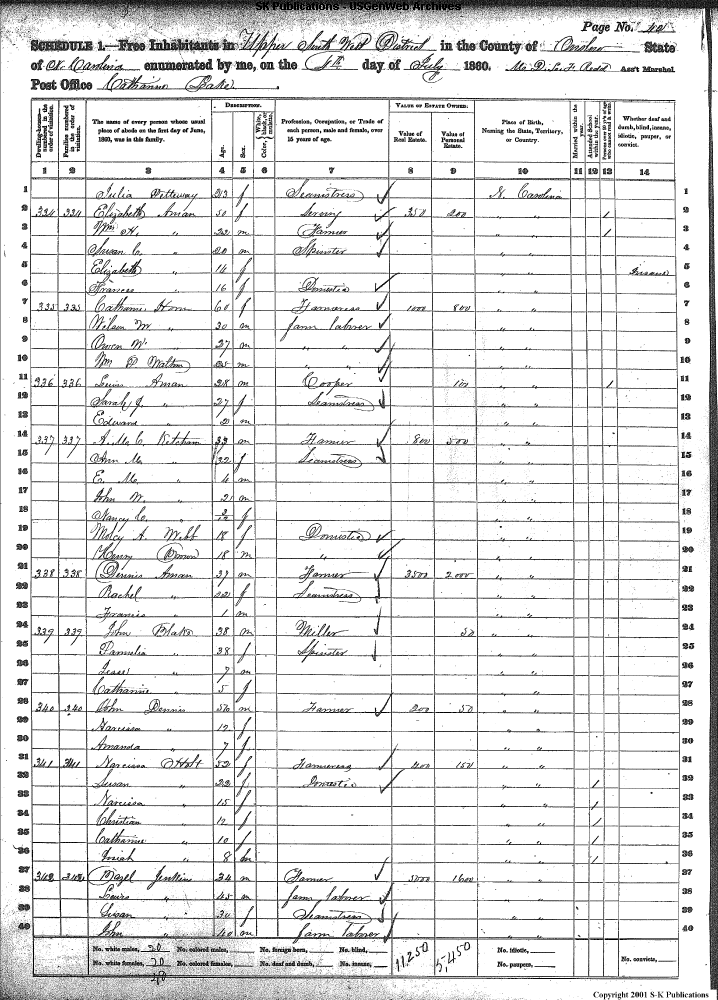 SK Publications - USGenWeb Archives
Page No. 40
SCHEDULE 1.—Free Inhabitants in Upper South West District in the County of Onslow State
of N. Carolina enumerated by me, on the 4th day of July 1860. Ass't Marshal.
Post Office Catharine Lake
DESCRIPTION. VALUE OF ESTATE OWNED.
Dwelling-houses—numbered in the order of visitation. Families numbered in the order of visitation. The name of every person whose usual place of abode on the first day of June, 1860, was in this family. Age. Sex. Color, White, black, or mulatto. Profession, Occupation, or Trade of each person, male and female, over 15 years of age. Value of Real Estate. Value of Personal Estate. Place of Birth, Naming the State, Territory, or Country. Married within the year. Attended School within the year. Whether deaf and dumb, blind, insane, idiotic, pauper, or convict.
1 2 3 4 5 6 7 8 9 10 11 12 13 14
1 Julia f Seamstress N. Carolina 1
2 334 334 Elizabeth Aman 50 f Sewing 350 200 " " / 2
3 Wm H. " 22 m Farmer " " / 3
4 Susan C. " 20 Spinster " " 4
5 Elizabeth " 14 f " " Insane 5
6 Frances " 16 f Domestic " " 6
7 335 335 Catharine Horn 60 f Farmeress 1000 800 " " 7
8 Wilson M " 30 m farm labner " " 8
9 Owen W. " 27 m " " " " 9
10 Wm D Walton 25 m " " " " 10
11 336 336 Lewis Aman 28 m Cooper 100 " " / 11
12 Sarah J. " 27 f Seamstress " " 12
13 Edward " 2 m " " 13
14 337 337 A. Mc C. Ketcham 33 m Farmer 800 500 " " 14
15 Ann M. " 32 f Seamstress " " 15
16 E. M. " 4 m " " 16
17 John W. " 2 m " " 17
18 Nancy C. " f " " 18
19 Mercy A. Webb 18 f Domestic " " 19
20 Henry Brown 18 m " " " 20
21 338 338 Dennis Aman 37 m Farmer 3500 2000 " " 21
22 Rachel " f Seamstress " " 22
23 Francis " 1 m " " 23
24 339 339 John Blake 38 m Miller 50 " " 24
25 Pamelia " 38 f Spinster " " 25
26 Jesse " 7 m " " 26
27 Catharine " 5 f " " 27
28 340 340 John Dennis 56 m Farmer 200 50 " " 28
29 Narcissa " 12 f " " 29
30 Amanda " 7 f " " 30
31 341 341 Narcissa Holt 52 f Farmeress 400 150 " " 31
32 Susan " 22 f Domestic " " / 32
33 Narcissa " 15 f " " / 33
34 Christian " 12 f " " / 34
35 Catharine " 10 f " " / 35
36 Josiah " 8 m " " / 36
37 342 342 Bazel Jenkins 34 m Farmer 5000 1600 " " 37
38 Lewis " 45 m farm labner " " 38
39 Susan " 30 f Seamstress " " 39
40 John " 40 m farm labner " " 40
No. white males, 20 No. colored males, No. foreign born, No. blind, 11,250 5,450 No. idiotic,
No. white females, 20 No. colored females, No. deaf and dumb, No. insane, No. paupers, No. convicts,
40
Copyright 2001 S-K Publications